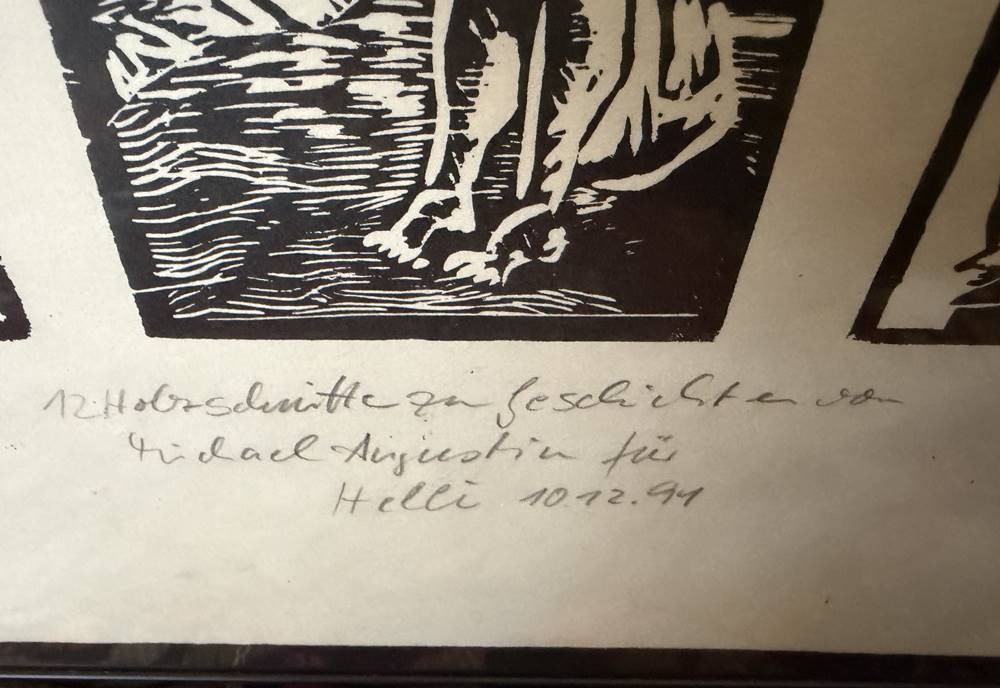 12 Holzschnitte zu Geschichten von
Michael Augustin für
Helli 10.12.91